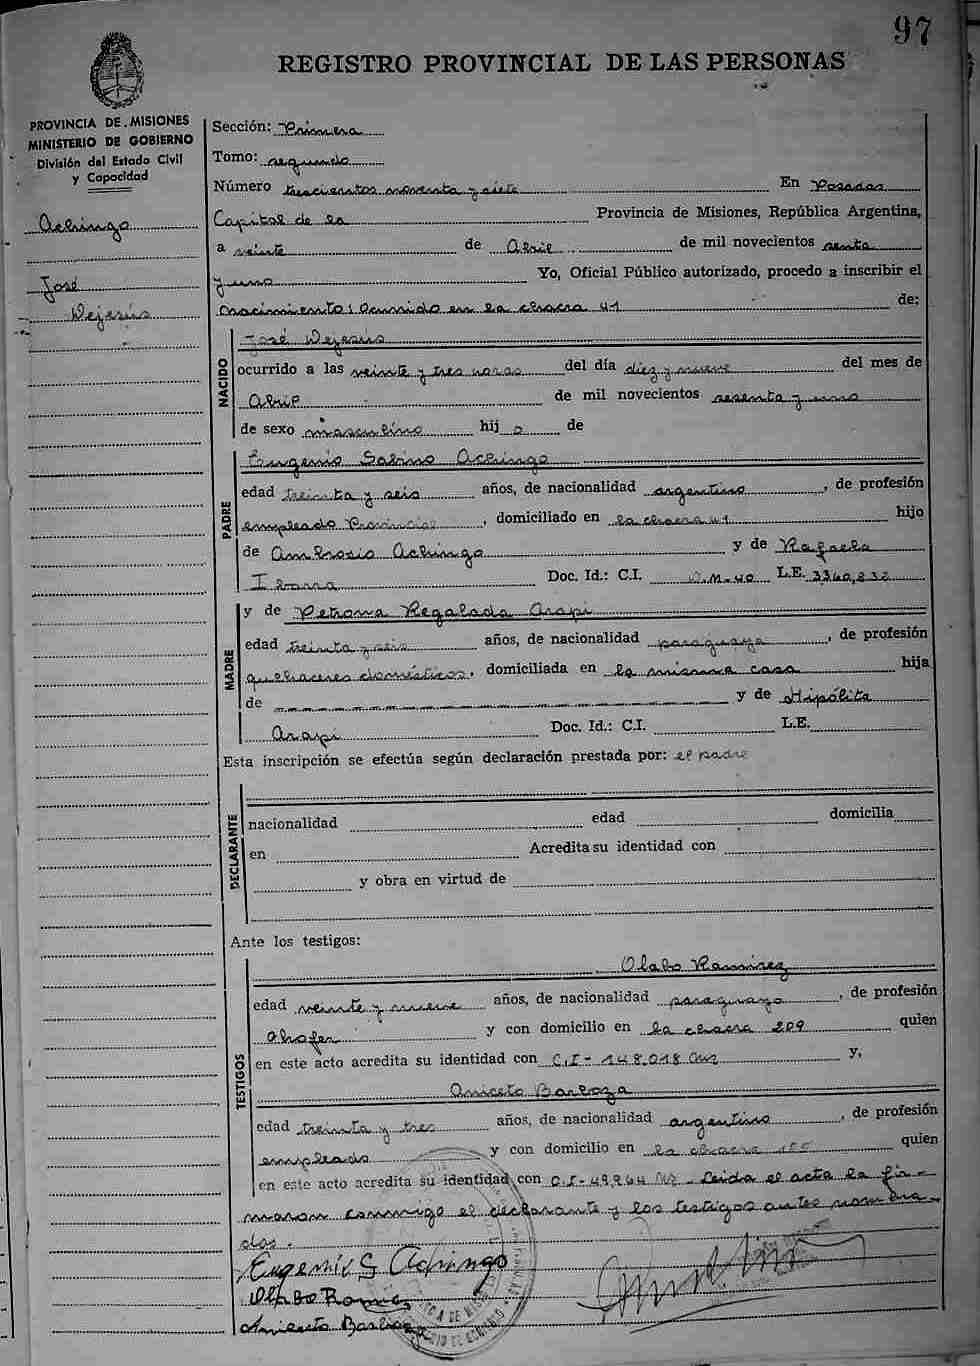 97
REGISTRO PROVINCIAL DE LAS PERSONAS
PROVINCIA DE MISIONES
MINISTERIO DE GOBIERNO
División del Estado Civil
y Capacidad
Achingo
José
Dejesús
Sección: Primera
Tomo: segundo
Número trescientos noventa y siete En Posadas
Capital de la Provincia de Misiones, República Argentina,
a veinte de Abril de mil novecientos senta
y uno Yo, Oficial Público autorizado, procedo a inscribir el
nacimiento: Ocurrido en la chacra 41 de:
NACIDO
José Dejesús
ocurrido a las veinte y tres horas del día diez y nueve del mes de
Abril de mil novecientos sesenta y uno
de sexo masculino hij o de
PADRE
Eugenio Sabino Achingo
edad treinta y seis años, de nacionalidad argentino, de profesión
empleado Provincial, domiciliado en la chacra 41 hijo
de Ambrosio Achingo y de Rafaela
Ibarra Doc. Id.: C.I. D.M.40 L.E. 3.360.832
MADRE
y de Petrona Regalada Arapi
edad treinta y seis años, de nacionalidad paraguaya, de profesión
quehaceres domésticos, domiciliada en la misma casa hija
de y de Hipólita
Arapi Doc. Id.: C.I. L.E.
Esta inscripción se efectúa según declaración prestada por: el padre
DECLARANTE
nacionalidad edad domicilia
en Acredita su identidad con
y obra en virtud de
Ante los testigos:
TESTIGOS
Olabo Ramirez
edad veinte y nueve años, de nacionalidad paraguayo, de profesión
chofer y con domicilio en la chacra 209 quien
en este acto acredita su identidad con C.I- 148.018 y,
Aniceto Barboza
edad treinta y tres años, de nacionalidad argentino, de profesión
empleado y con domicilio en la chacra 155 quien
en este acto acredita su identidad con C.I-49.964 - Leida el acta la fir-
maron conmigo el declarante y los testigos antes nombra-
dos.
Eugenio S Achingo
Olabo Ramirez
Aniceto Barboza